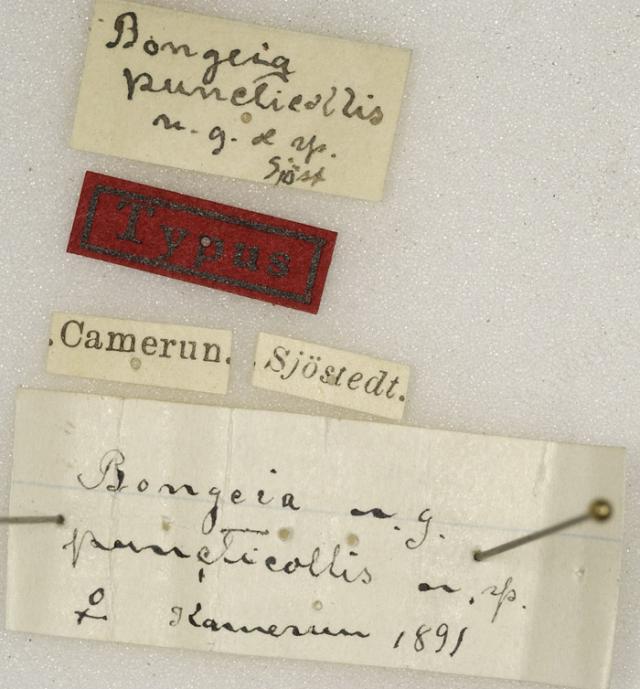 Bongeia
puncticollis
n. g. & sp.
Sjöst
Typus
Camerun.
Sjöstedt.
Bongeia n. g.
puncticollis n. sp.
♀ Kamerun 1891